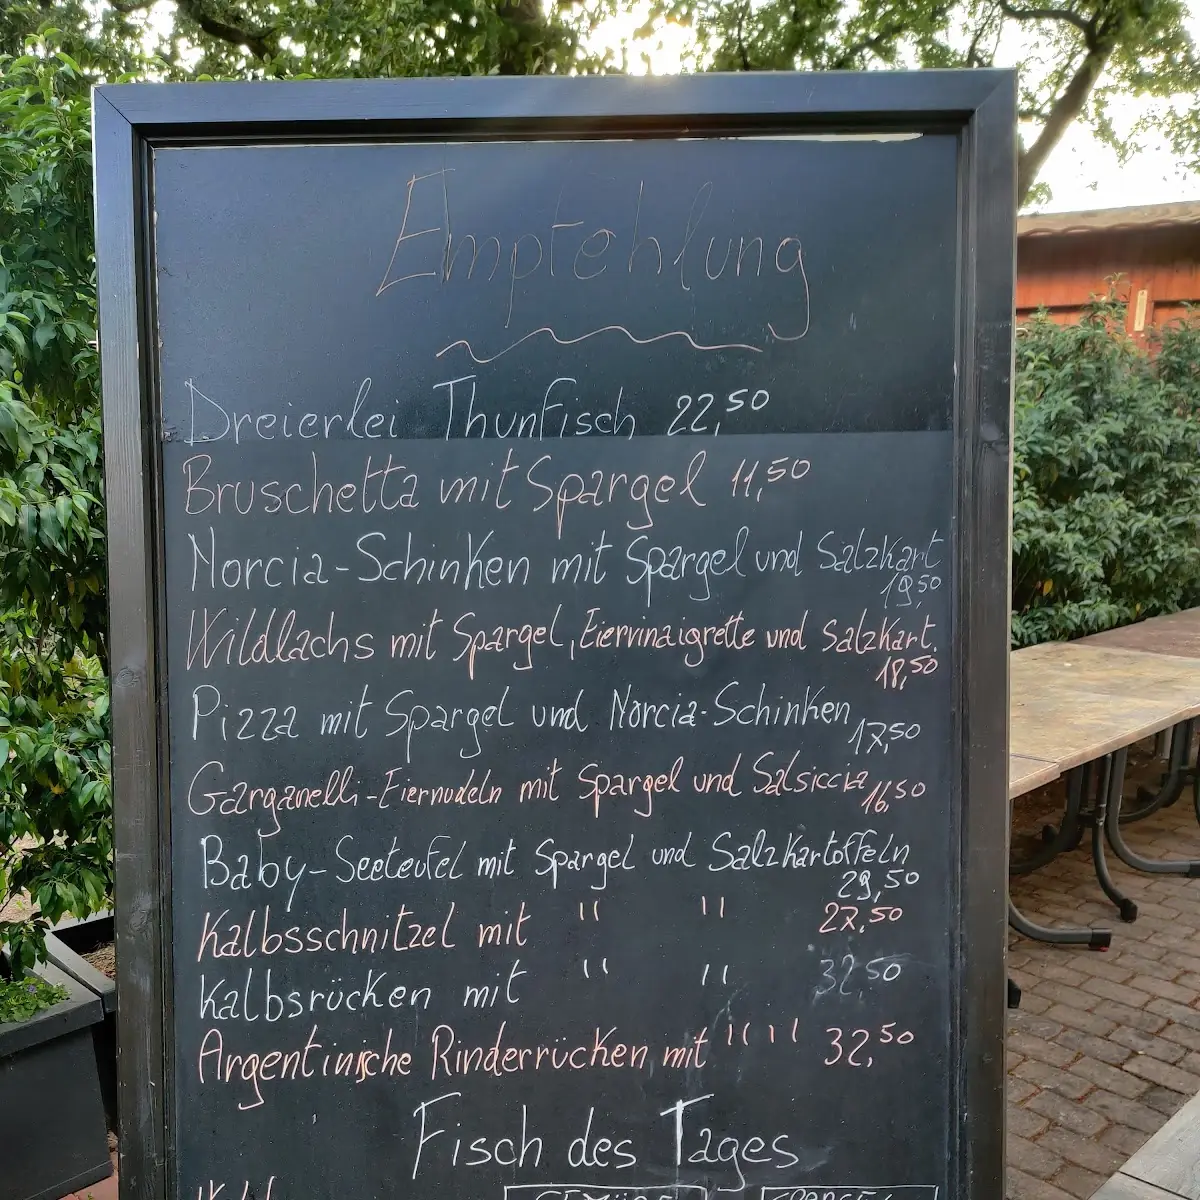 Empfehlung
Dreierlei Thunfisch 22,50
Bruschetta mit Spargel 11,50
Norcia-Schinken mit Spargel und Salzkart
19,50
Wildlachs mit Spargel, Eiervinaigrette und Salzkart.
18,50
Pizza mit Spargel und Norcia-Schinken 17,50
Garganelli-Eiernudeln mit Spargel und Salsiccia 16,50
Baby-Seeteufel mit Spargel und Salzkartoffeln
29,50
Kalbsschnitzel mit " " 27,50
Kalbsrücken mit " " 32,50
Argentinische Rinderrücken mit " " 32,50
Fisch des Tages